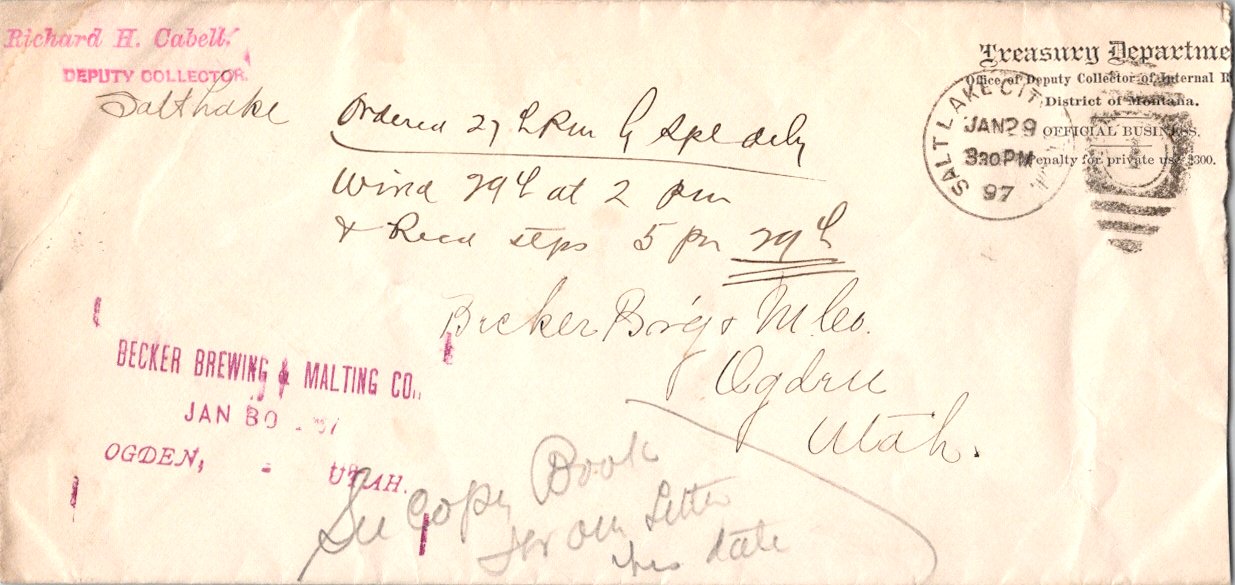 Richard H. Cabell.
DEPUTY COLLECTOR.
Salt Lake
Treasury Departme
Office of Deputy Collector of Internal R
District of Montana.
OFFICIAL BUSINESS.
Penalty for private use $300.
SALT LAKE CITY
JAN 29
330 PM
97
1
Ordered 27th 2 Pm by Spl dely
Wired 29th at 2 pm
& Recd stps 5 pm 29th
Becker Br'g & M. Co.
Ogden
Utah.
BECKER BREWING & MALTING CO.,
JAN 30 97
OGDEN, - UTAH.
See Copy Book
for our Letter
this date